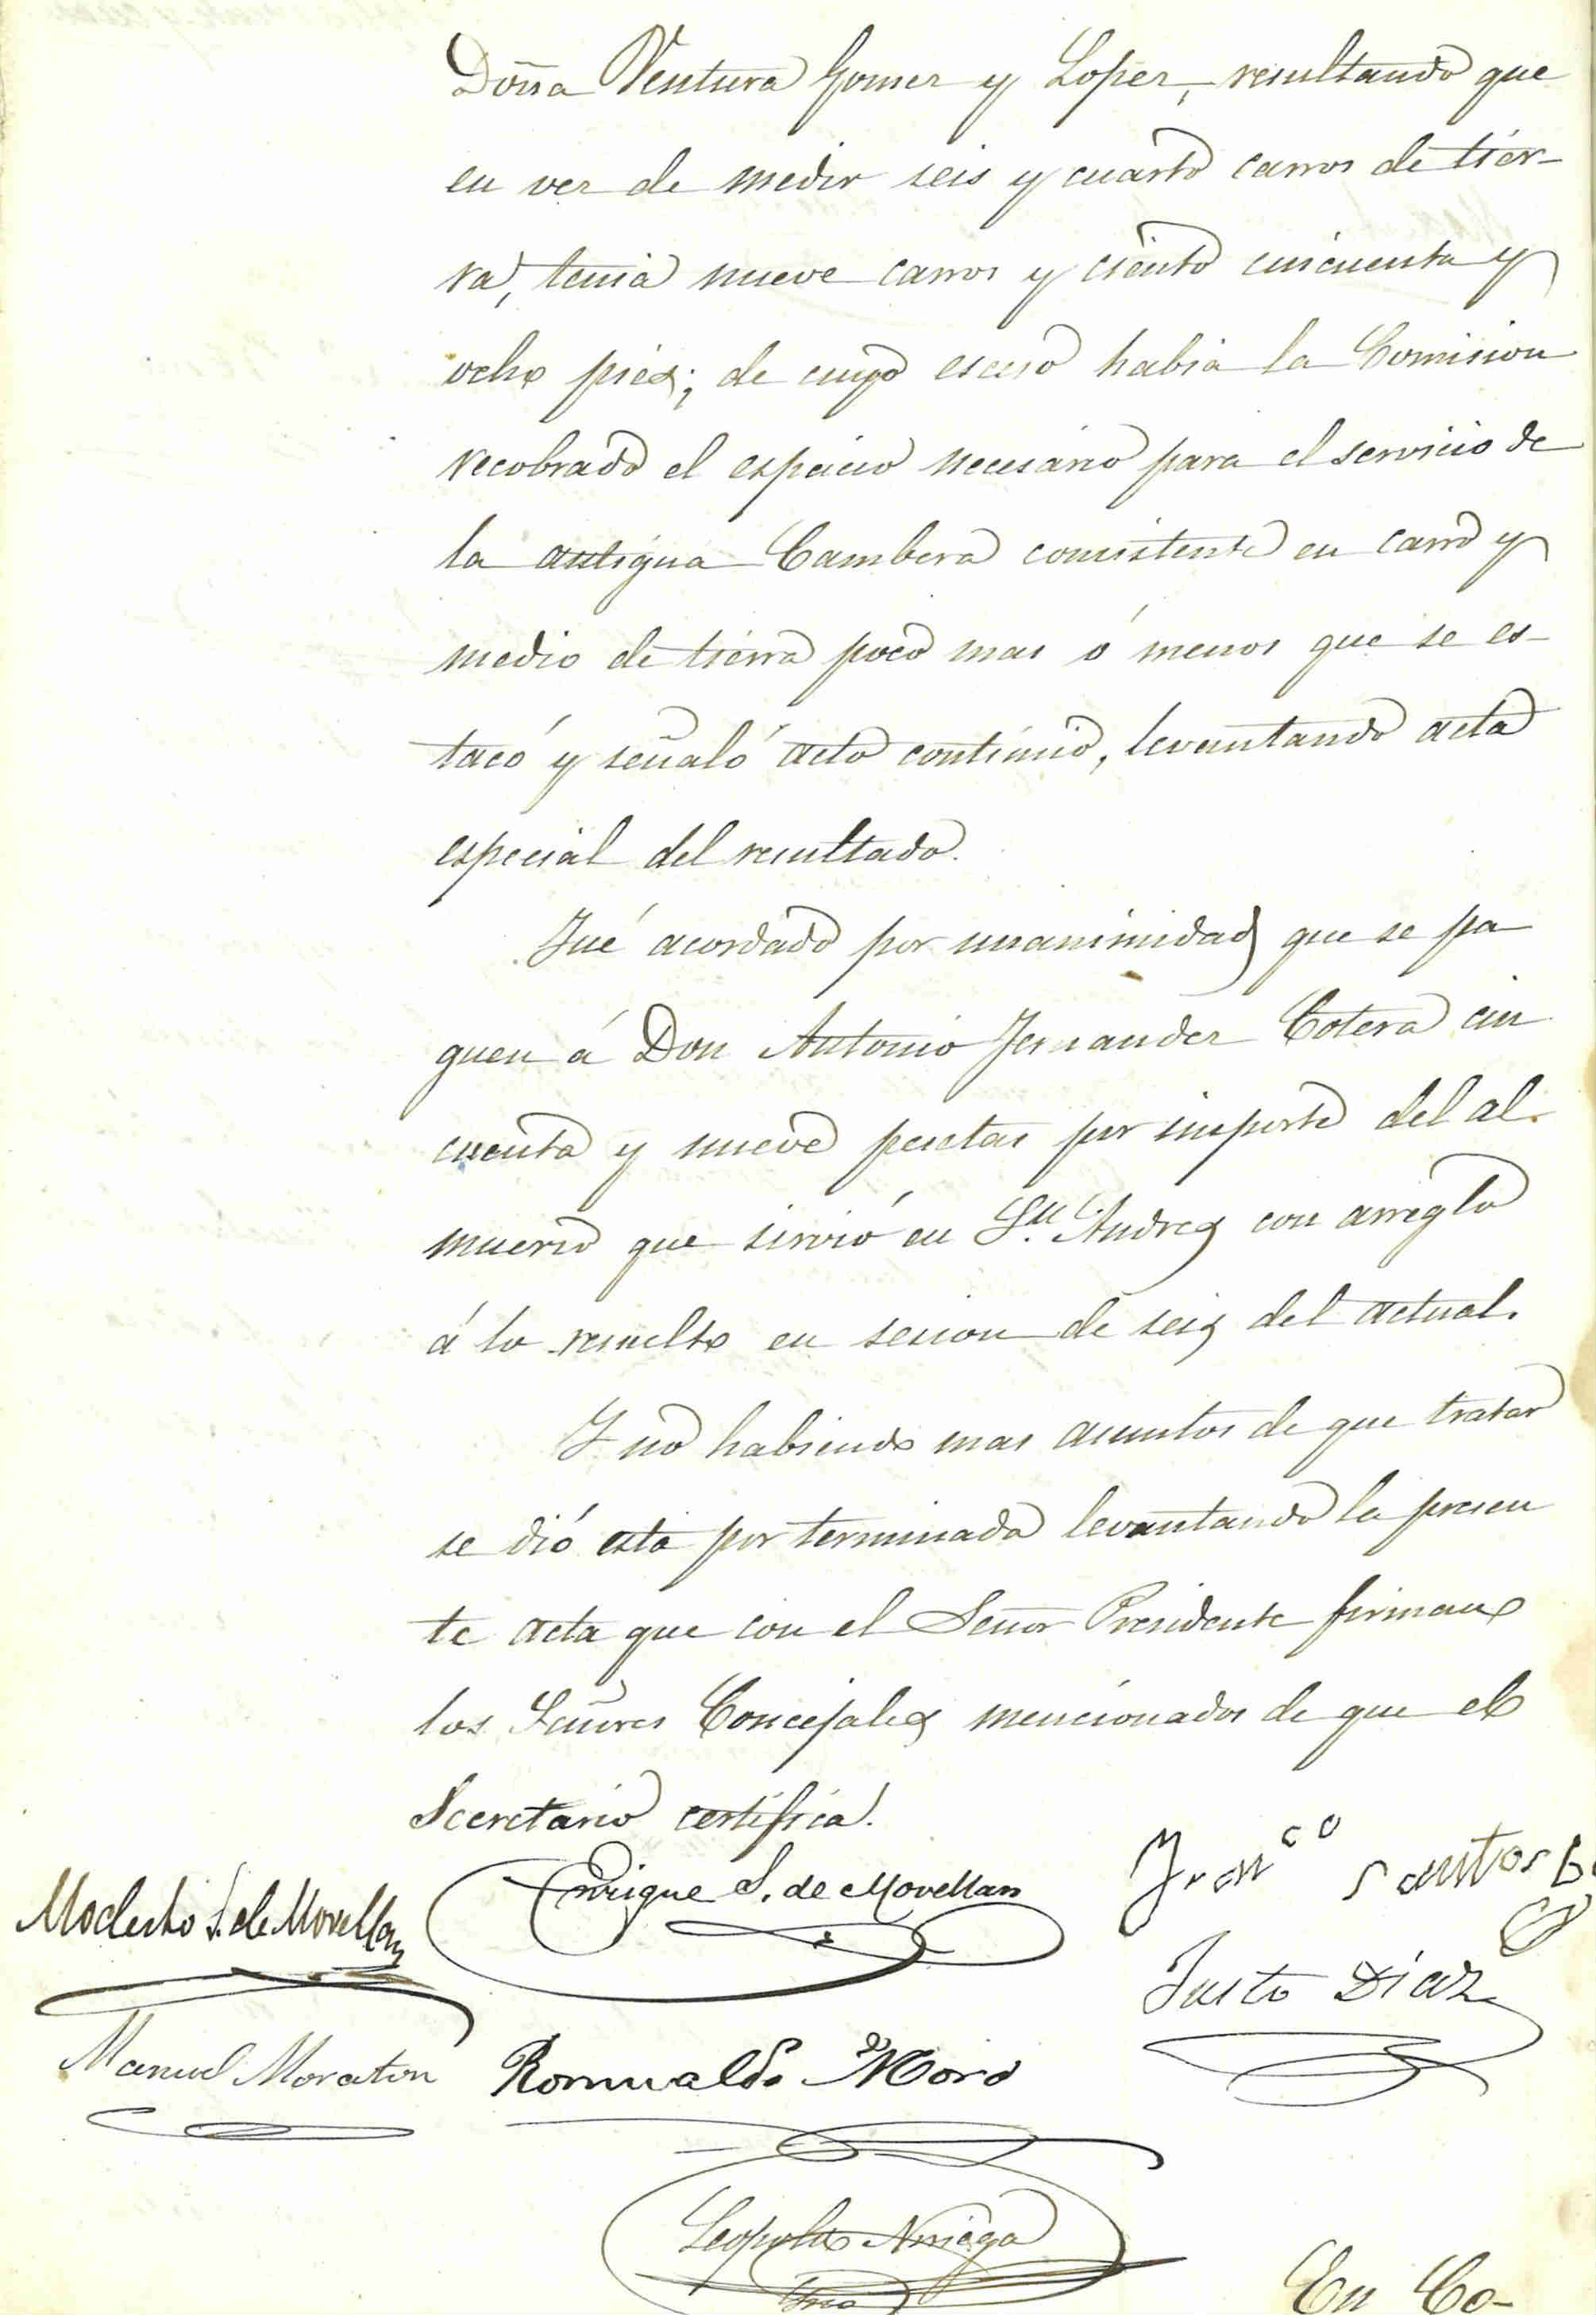 Doña Ventura Gomez y Lopez, resultando que
en vez de medir seis y cuarto carros de tier-
ra, tenia nueve carros y ciento cincuenta y
ocho piés; de cuyo esceso habia la Comision
recobrado el espacio necesario para el servicio de
la antigua Cambera consistente en carro y
medio de tierra poco mas ó menos que se es-
tacó y señaló acto contínuo, levantando acta
especial del resultado.
Fué acordado por unanimidad que se pa
guen á Don Antonio Fernandez Cotera cin
cuenta y nueve pesetas por importe del al-
muerzo que sirvió en Sn. Andres con arreglo
á lo resuelto en sesion de seis del actual.
Y no habiendo mas asuntos de que tratar
se dió esta por terminada levantando la presen
te acta que con el Señor Presidente firman
los Señores Concejales mencionados de que el
Secretario certifica.
Modesto S. de Movellan Enrique S. de Movellan Franco Santos
Justo Diaz
Manuel Moraton Romualdo Moro
Leopoldo Noriega
Srio
En Co-